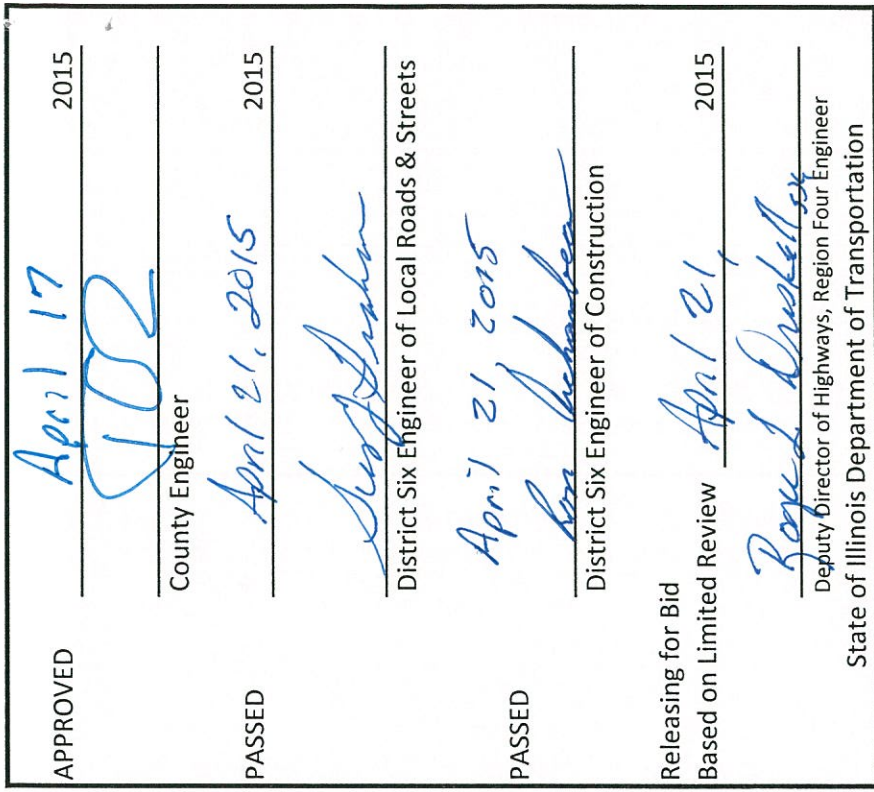 APPROVED April 17 2015
County Engineer
PASSED April 21, 2015 2015
District Six Engineer of Local Roads & Streets
PASSED April 21, 2015
Ron
District Six Engineer of Construction
Releasing for Bid
Based on Limited Review April 21, 2015
Roger L Driskell
Deputy Director of Highways, Region Four Engineer
State of Illinois Department of Transportation